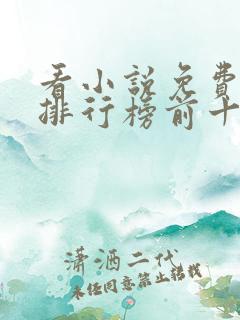 看小说免费
排行榜前十
潇洒二代
未经同意禁止转载